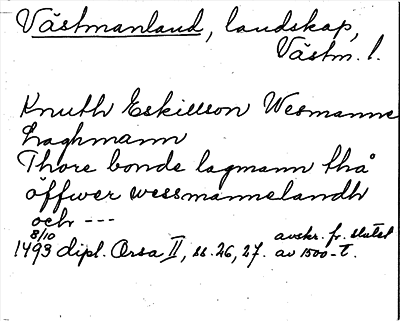 Västmanland, landskap,
Västm. l.
Knuth Eskillson Wesmanne
Laghmann
Thore bonde lagmann thå
öffwer wessmannelandh
och ---
8/10
1493 dipl. Orsa II, ss. 26, 27. avskr. fr. slutet
av 1500-t.